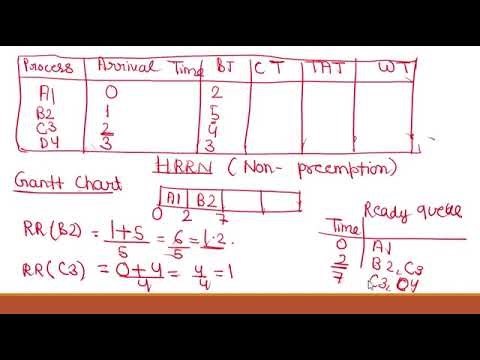 Process Arrival Time BT CT TAT WT
A1 0 2
B2 1 5
C3 2 4
D4 3 3
HRRN (Non-preemption)
Gantt Chart
A1 B2
0 2 7
RR(B2) = 1+5/5 = 6/5 = 1.2
RR(C3) = 0+4/4 = 4/4 = 1
Ready queue
Time
0 A1
2 B2, C3
7 C3, D4